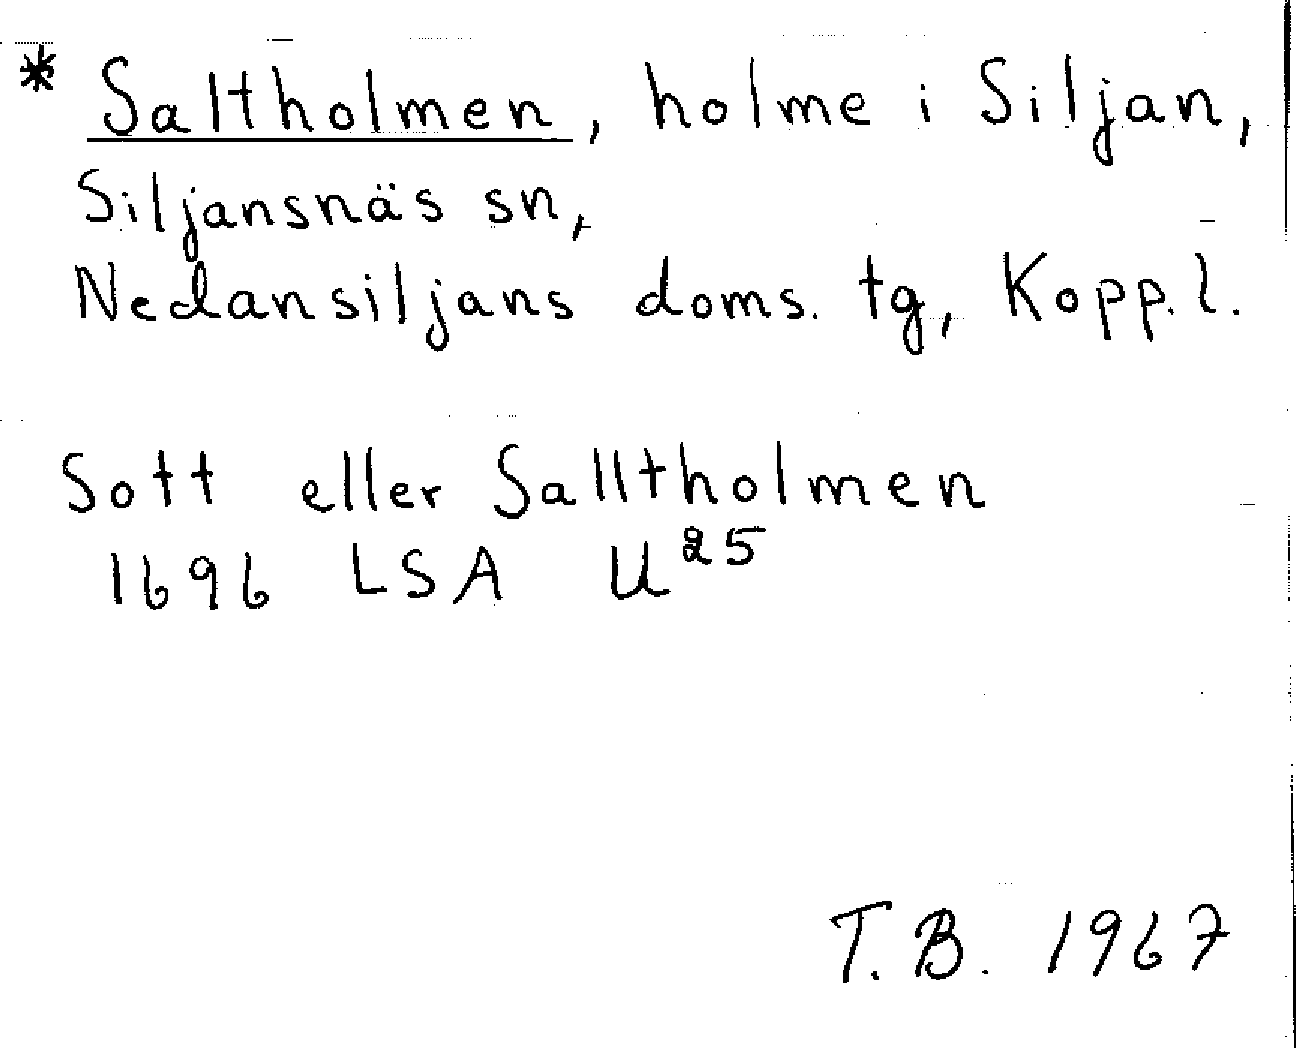 * Saltholmen, holme i Siljan,
Siljansnäs sn,
Nedansiljans doms. tg, Kopp. l.
Sott eller Salltholmen
1696 LSA U 25
T. B. 1967